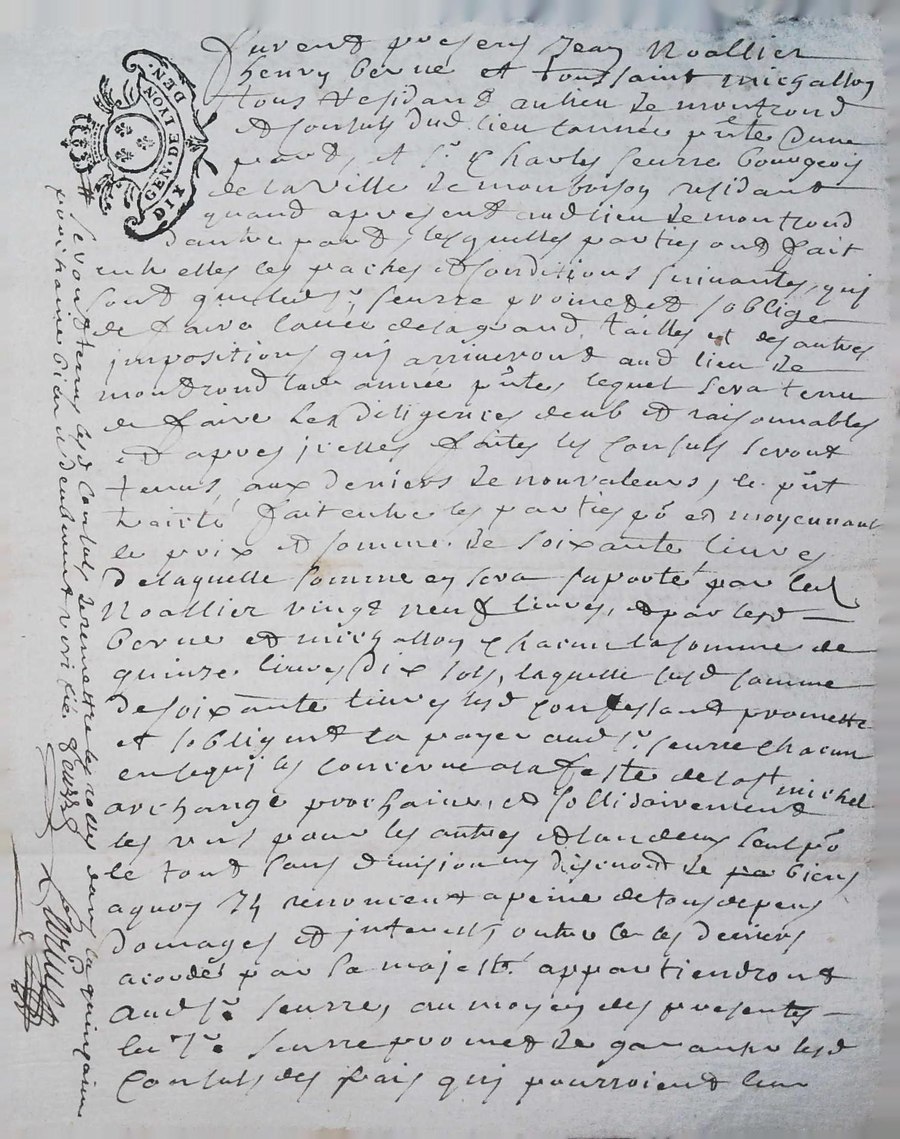 GEN. DE LYON.
DIX DEN.
furent presens Jean Noallier
henry berne et toussaint michallon
tous residand au lieu de montrond
et Consuls dud. lieu lannée pnte dune
part, et sr. Charles seurre bourgeois
de la ville de monbrison residant
quand a present aud lieu de montrond
dautre part lesquelles parties ont fait
entre elles les paches et Conditions suivantes, qui
sont que led. sr. seurre promet et soblige
de faire la levée de la grand tailles et des autres
impositions qui arriveront aud lieu de
montrond lad année pnte, lequel sera tenu
de faire les diligences deub et raisonnables
et apres icelles faites les Consuls seront
tenus aux deniers de nouvaleurs, le pnt
traitté fait entre les parties po et moyennant
le prix et somme de soixante livres
de laquelle somme en sera suporté par led
Noallier vingt neuf livres, et par lesd
berne et michallon Chacun la somme de
quinze livres dix sols, laquelle susd somme
de soixante livres lesd confessant promette
et sobligent la payer aud sr. seurre Chacun
en se qui les Concerne a la feste de la st michel
archange prochaine, et sollidairement
les uns pour les autres et lun deux seul po
le tout sans division ny discution de biens
a quoy ils renoncent a peine de tous depens
domages et interests outre ce les deniers
acordés par sa majesté appartiendront
aud sr. seurre, au moyen des presentes
led sr. seurre promet de garantir lesd
Consuls des frais qui pourroient leur
# seront tenus lesd Consuls de remettre les rolles dans la quinzaine
prochaine bien et deubement veriffié